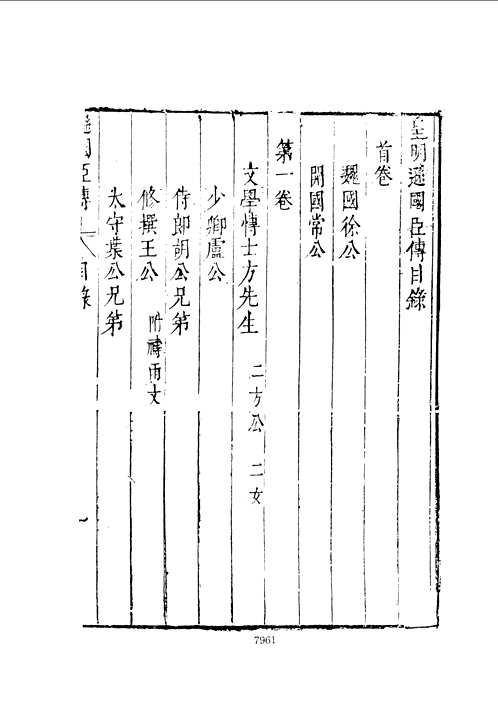 皇明遜國臣傳目錄
首卷
魏國徐公
開國常公
第一卷
文學博士方先生 二方公 二女
少卿盧公
侍郎胡公兄弟
修撰王公 附禱雨文
太守葉公兄弟
遜國臣傳 目錄 一
7961